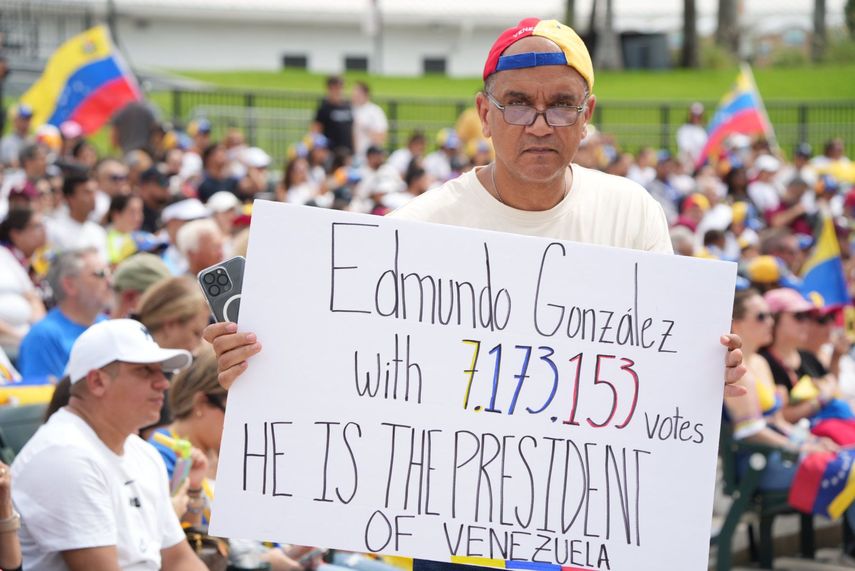 VENEZ
Edmundo González
with 7.173.153 votes
HE IS THE PRESIDENT
OF VENEZUELA